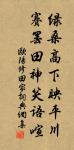 綠桑高下映平川
賽罷田神笑語喧
歐陽修田家詞典網集